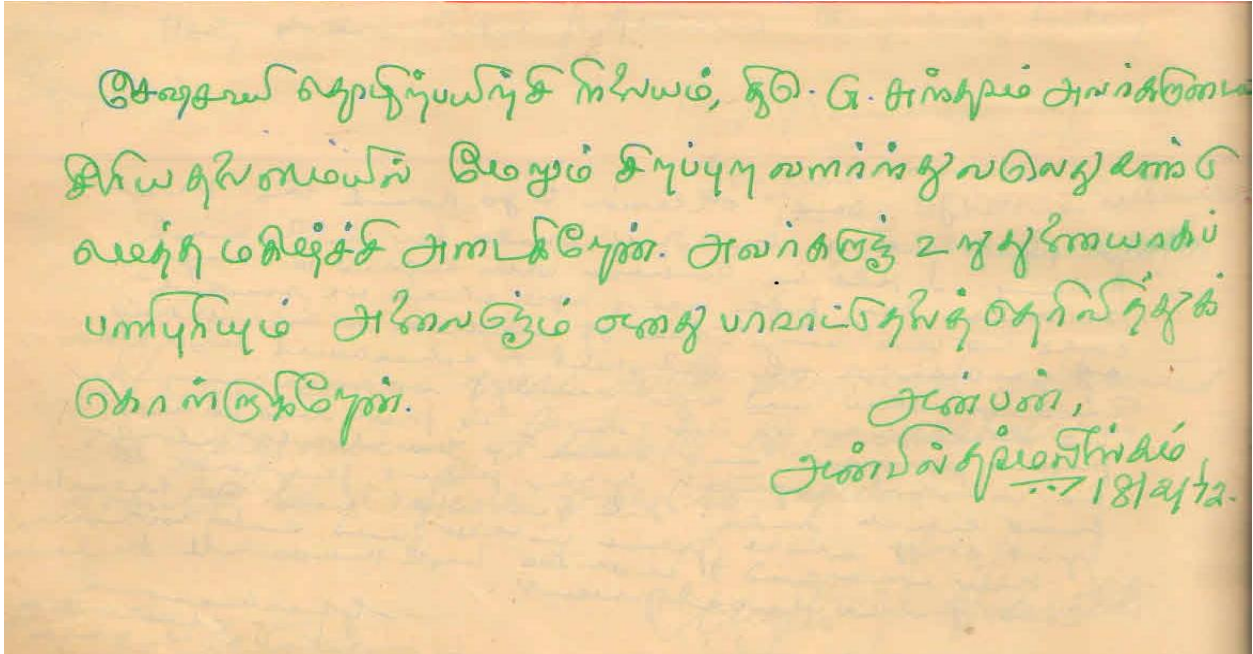 சேஷசாயி தொழிற்பயிற்சி நிலையம், திரு. G. சுந்தரம் அவர்களுடைய
சீரிய தலைமையில் மேலும் சிறப்புற வளர்ந்து வருவது கண்டு
மெத்த மகிழ்ச்சி அடைகிறேன். அவர்களுக்கு உறுதுணையாகப்
பணிபுரியும் அனைவருக்கும் எனது பாராட்டுதலைத் தெரிவித்துக்
கொள்ளுகிறேன்.
அன்பன்,
அன்பில் தர்மலிங்கம்